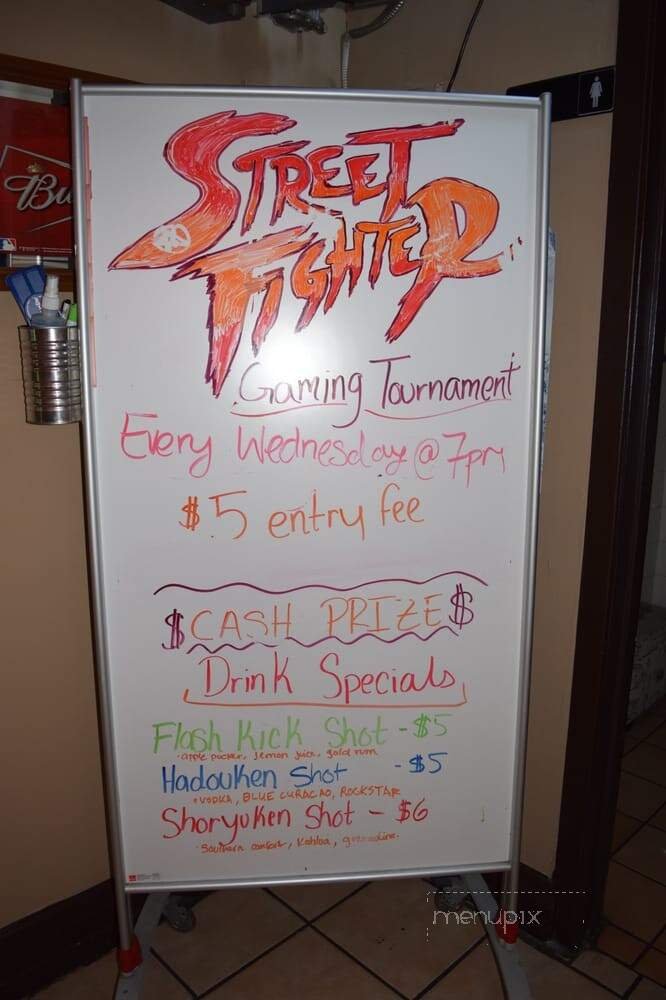 STREET
FIGHTER
Gaming Tournament
Every Wednesday @ 7pm
$5 entry fee
$ CASH PRIZE $
Drink Specials
Flash Kick Shot - $5
apple pucker, lemon juice, gold rum
Hadouken Shot - $5
VODKA, BLUE CURACAO, ROCKSTAR
Shoryuken Shot - $6
Southern comfort, Kahlua, grenadine
Bu
menupix